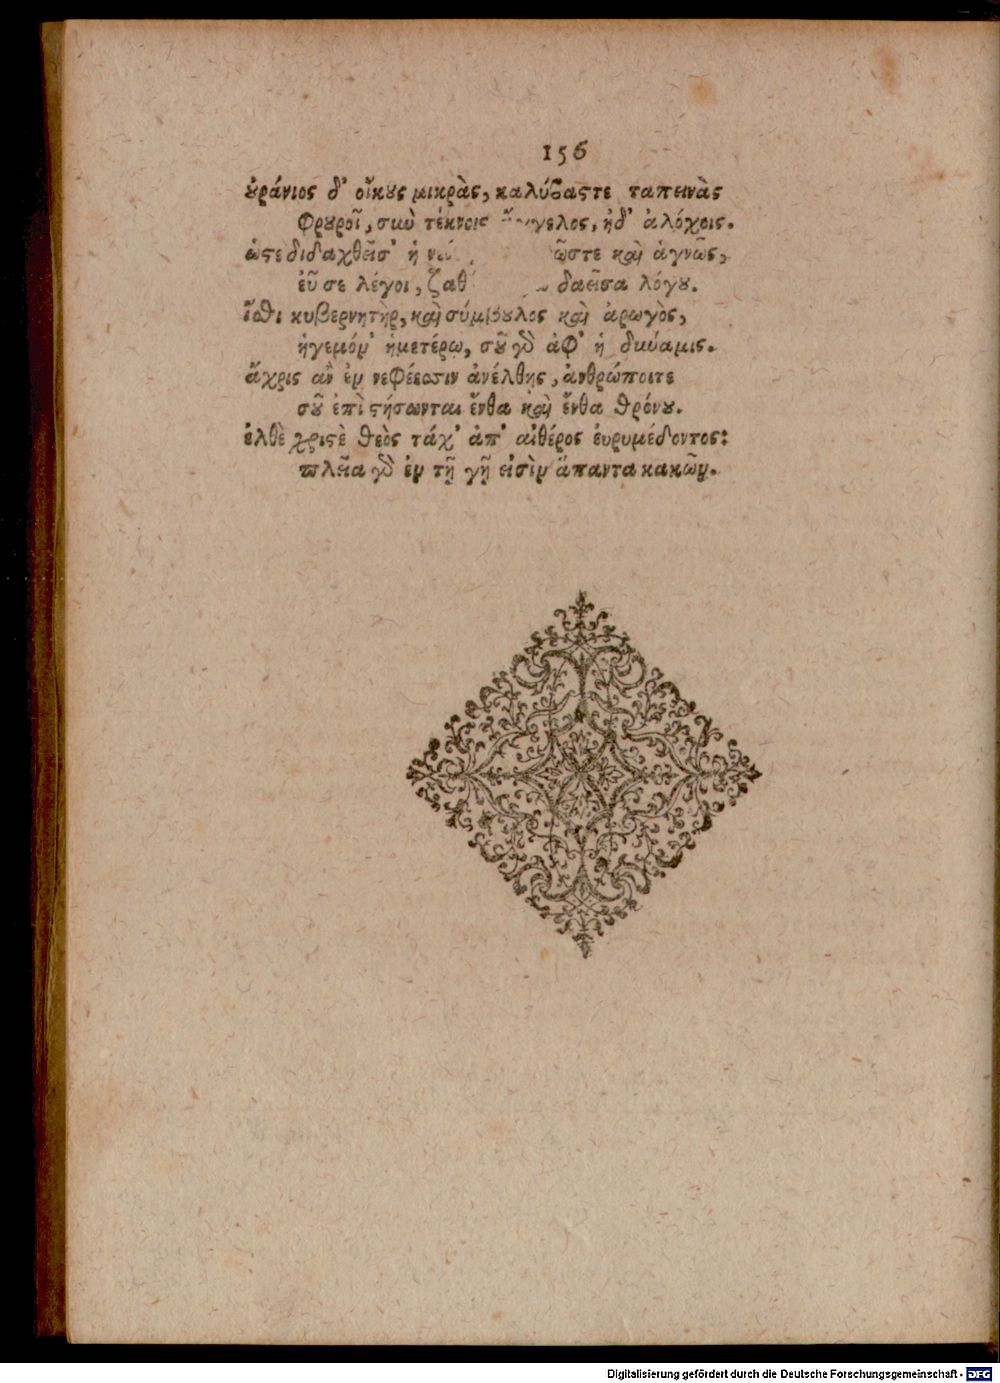 156
οὐράνιος δ' οἴκους μικρὰς, καλύβας τε ταπεινὰς
φρουροῖ, σὺν τέκνοις ἄγγελος, ἠδ' ἀλόχοις.
ὡς διδαχθεῖσ' ἡ ὥστε καὶ ἁγνῶς,
εὖ σε λέγοι, δαεῖσα λόγου.
ἴσθι κυβερνητὴρ, καὶ σύμβουλος καὶ ἀρωγὸς,
ἡγεμόν' ἡμετέρῳ, σοῦ γὰρ ἀφ' ἡ δύναμις.
ἄχρις ἂν ἐν νεφέεσσιν ἀνέλθῃς, ἄνθρωποί τε
σοῦ ἐπιστήσωνται ἔνθα καὶ ἔνθα θρόνου.
ἐλθὲ χριστὲ θεὸς τάχ' ἀπ' αἰθέρος εὐρυμέδοντος:
πλεῖα γὰρ ἐν τῇ γῇ εἰσὶν ἅπαντα κακῶν.
Digitalisierung gefördert durch die Deutsche Forschungsgemeinschaft - DFG